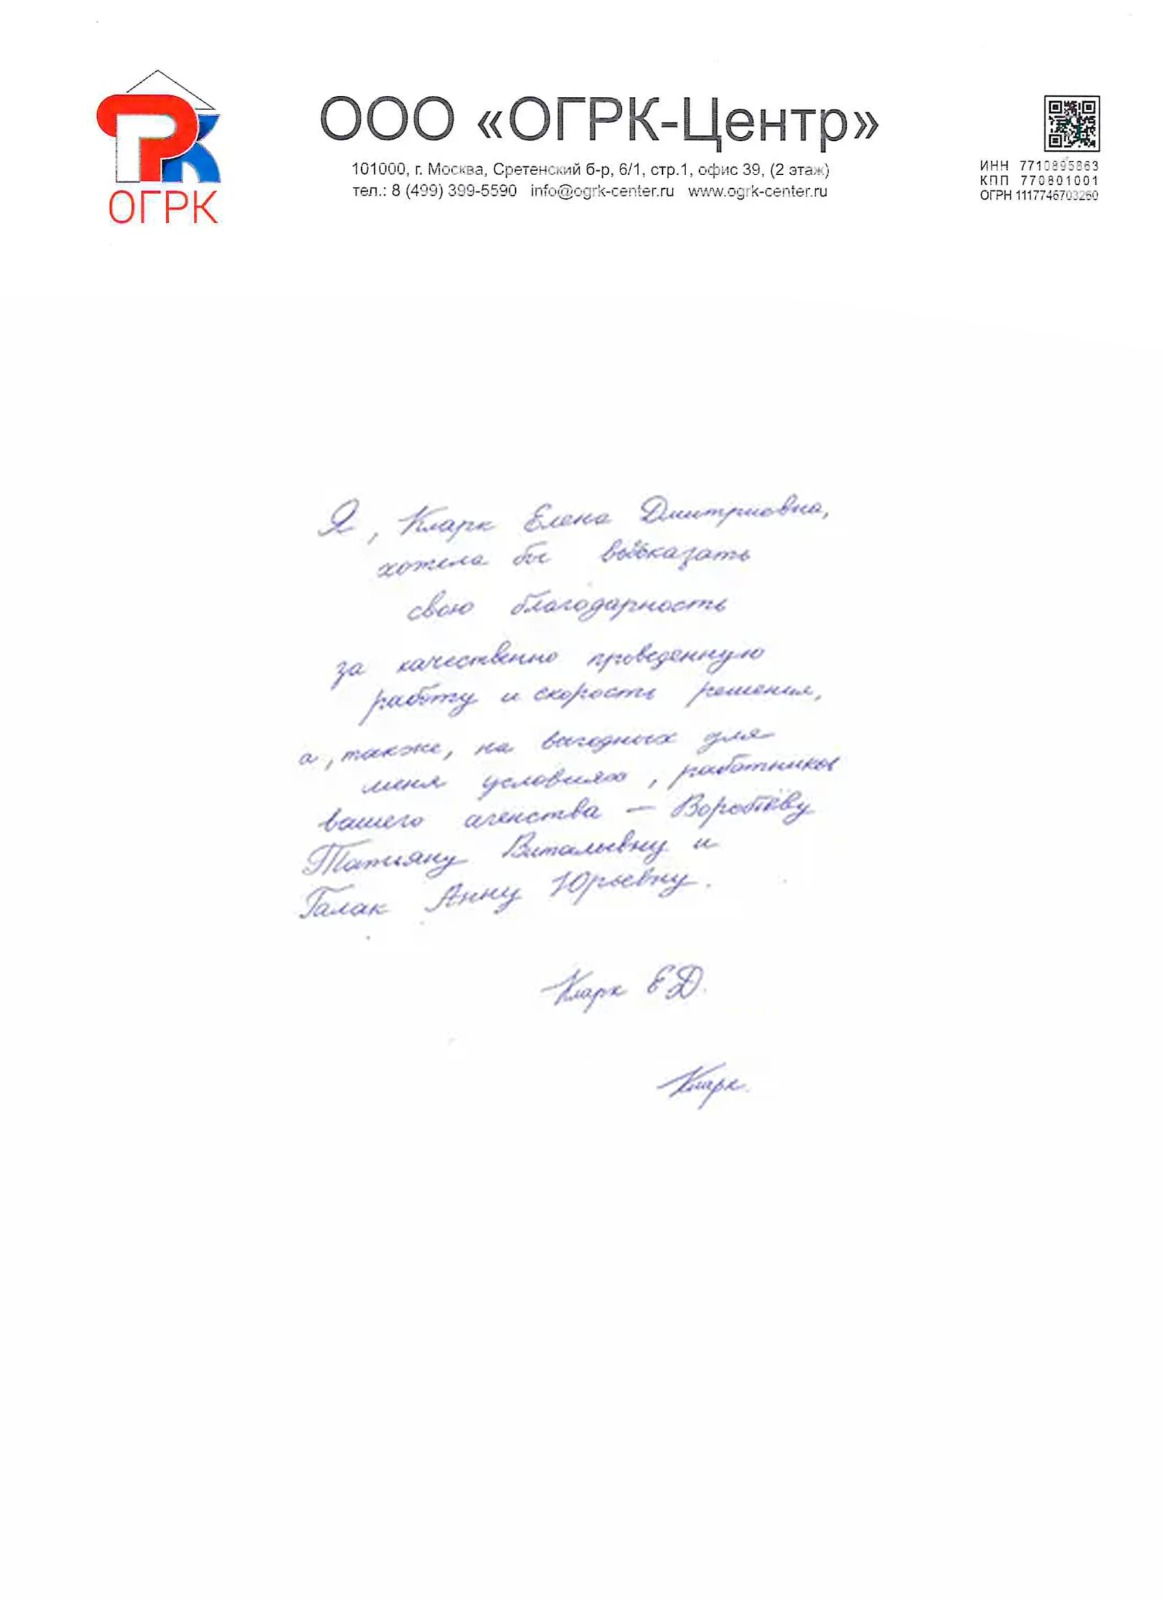 ОГРК
ООО «ОГРК-Центр»
101000, г. Москва, Сретенский б-р, 6/1, стр.1, офис 39, (2 этаж)
тел.: 8 (499) 399-5590 info@ogrk-center.ru www.ogrk-center.ru
ИНН 7710895863
КПП 770801001
ОГРН 1117746703260
Я, Кларк Елена Дмитриевна,
хотела бы высказать
свою благодарность
за качественно проведенную
работу и скорость решения,
а, также, на выгодных для
меня условиях, работников
вашего агенства — Воробьёву
Татьяну Витальевну и
Галак Анну Юрьевну.
Кларк ЕД.
Кларк.